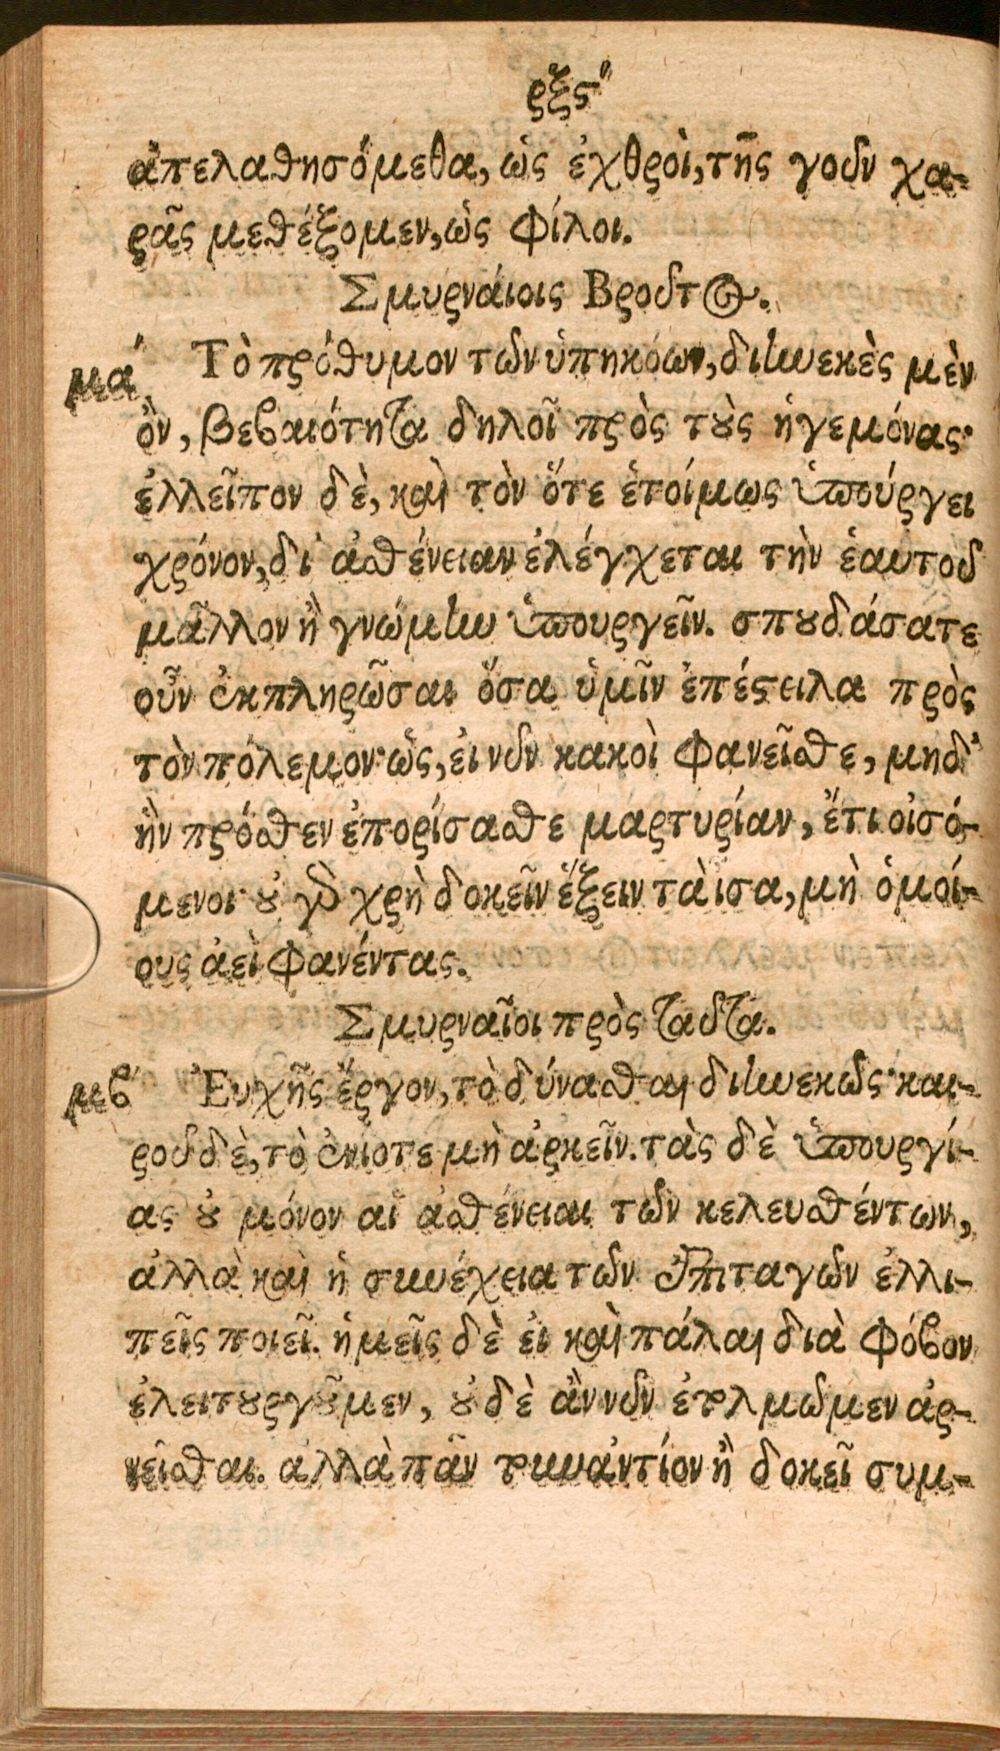 ρξς΄
ἀπελαθησόμεθα, ὡς ἐχθροὶ, τῆς γοῦν χα-
ρᾶς μεθέξομεν, ὡς φίλοι.
Σμυρνάιοις Βροῦτος.
μα΄ Τὸ πρόθυμον τῶν ὑπηκόων, διηνεκὲς μὲν
ὂν, βεβαιότητα δηλοῖ πρὸς τοὺς ἡγεμόνας·
ἐλλεῖπον δὲ, καὶ τὸν ὅτε ἑτοίμως ὑπούργει
χρόνον, δι᾽ ἀσθένειαν ἐλέγχεται τὴν ἑαυτοῦ
μᾶλλον ἢ γνώμην ὑπουργεῖν. σπουδάσατε
οὖν ἐκπληρῶσαι ὅσα ὑμῖν ἐπέστειλα πρὸς
τὸν πόλεμον· ὡς, ἐι νῦν κακοὶ φανεῖσθε, μηδ᾽
ἣν πρόσθεν ἐπορίσασθε μαρτυρίαν, ἔτι οἰσό-
μενοι· οὐ γὰρ χρὴ δοκεῖν ἕξειν τὰ ἴσα, μὴ ὁμοί-
ους ἀεὶ φανέντας.
Σμυρναῖοι πρὸς ταῦτα.
μβ΄ Ἐυχῆς ἔργον, τὸ δύνασθαι διηνεκῶς· και-
ροῦ δὲ, τὸ ἐνίοτε μὴ ἀρκεῖν. τὰς δὲ ὑπουργί-
ας οὐ μόνον αἱ ἀσθένειαι τῶν κελευσθέντων,
ἀλλὰ καὶ ἡ συνέχεια τῶν ἐπιταγῶν ἐλλι-
πεῖς ποιεῖ. ἡμεῖς δὲ ἐι καὶ πάλαι διὰ φόβον
ἐλειτουργοῦμεν, οὐδὲ ἂν νῦν ἐτολμῶμεν ἀρ-
νεῖσθαι. ἀλλὰ πᾶν τουναντίον ἢ δοκεῖ συμ-